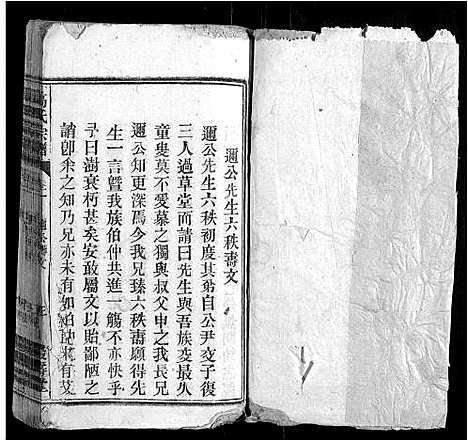 邇公先生六秩壽文
邇公先生六秩初度其弟自公尹㕛子復
三人過草堂而請曰先生與吾族㕛最久
童叟莫不愛慕之獨與叔父申之我長兄
邇公知更深焉今我兄臻六秩壽願得先
生一言曁我族伯仲共進一觴不亦快乎
予曰澍衰朽甚矣安敢屬文以貽鄙陋之
誚卽余之知乃兄亦未有如
氏宗譜